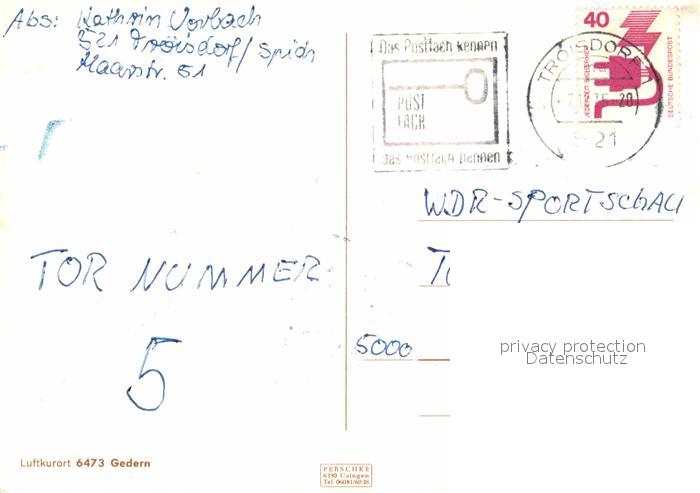 Abs: Kathrin Vorbach
521 Troisdorf/Spich
Haarstr. 51
Das Postfach kennen
POST
FACH
das Postfach nennen
TROISDORF
521
40
JEDERZEIT SICHERHEIT
DEUTSCHE BUNDESPOST
WDR-SPORTSCHAU
TOR NUMMER
5
5000
privacy protection
Datenschutz
Luftkurort 6473 Gedern
PERSCHKE
6390 Usingen
Tel. 06081/6038